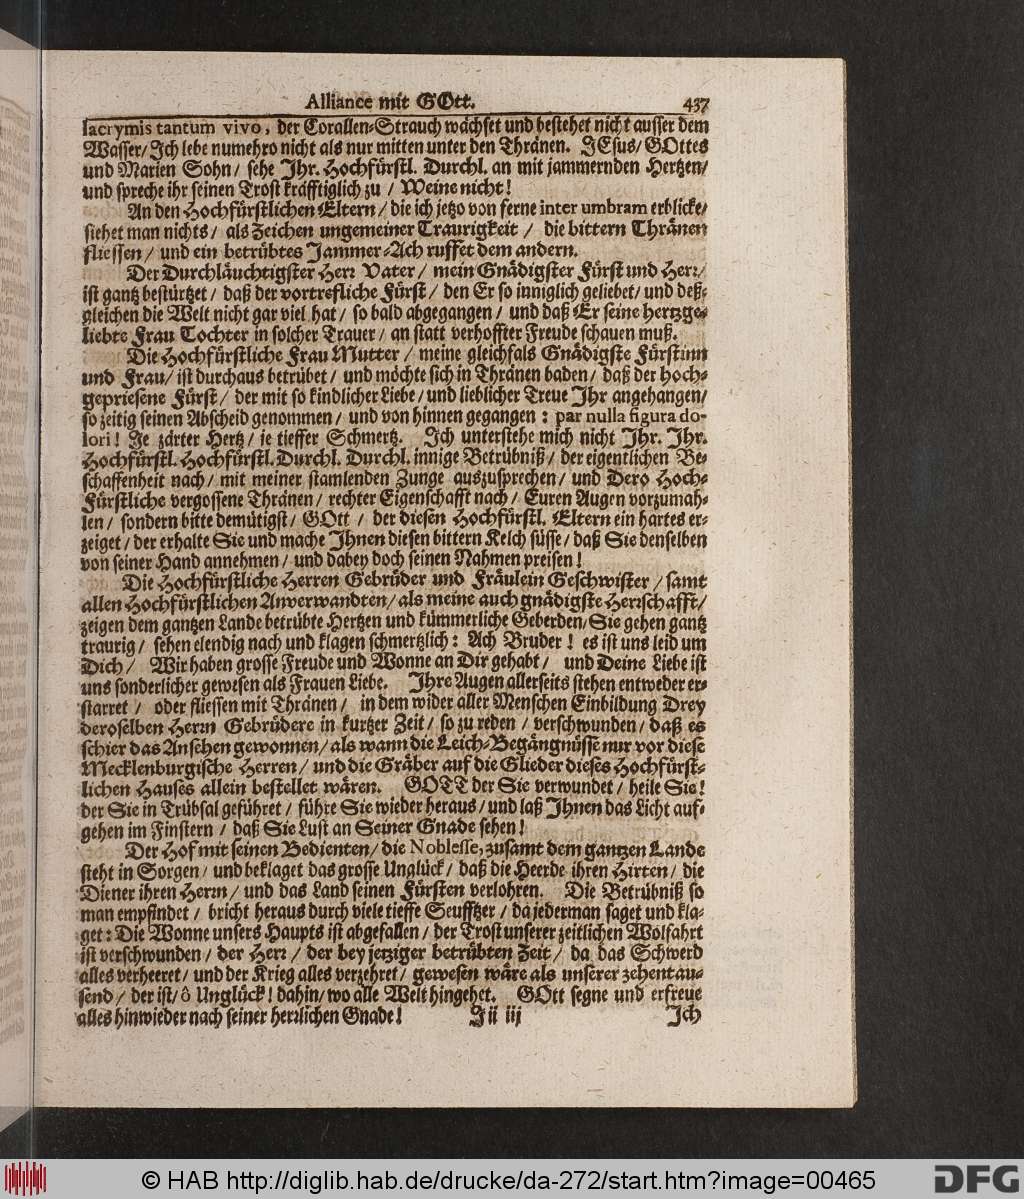 Alliance mit GOtt. 437
lacrymis tantum vivo, der Corallen-Strauch wächset und bestehet nicht ausser dem
Wasser/ Ich lebe numehro nicht als nur mitten unter den Thränen. JEsus/ GOttes
und Marien Sohn/ sehe Ihr. Hochfürstl. Durchl. an mit jammernden Hertzen/
und spreche ihr seinen Trost kräfftiglich zu / Weine nicht!
An den Hochfürstlichen Eltern/ die ich jetzo von ferne inter umbram erblicke/
siehet man nichts/ als Zeichen ungemeiner Traurigkeit / die bittern Thränen
fliessen/ und ein betrübtes Jammer-Ach ruffet dem andern.
Der Durchläuchtigster Herr Vater/ mein Gnädigster Fürst und Herr/
ist gantz bestürtzet/ daß der vortrefliche Fürst/ den Er so inniglich geliebet/ und deß-
gleichen die Welt nicht gar viel hat/ so bald abgegangen/ und daß Er seine hertzge-
liebte Frau Tochter in solcher Trauer/ an statt verhoffter Freude schauen muß.
Die Hochfürstliche Frau Mutter/ meine gleichfals Gnädigste Fürstinn
und Frau/ ist durchaus betrübet/ und möchte sich in Thränen baden/ daß der hoch-
gepriesene Fürst/ der mit so kindlicher Liebe/ und lieblicher Treue Ihr angehangen/
so zeitig seinen Abscheid genommen/ und von hinnen gegangen: par nulla figura do-
lori! Je zärter Hertz/ je tieffer Schmertz. Ich unterstehe mich nicht Ihr. Ihr.
Hochfürstl. Hochfürstl. Durchl. Durchl. innige Betrübniß/ der eigentlichen Be-
schaffenheit nach/ mit meiner stamlenden Zunge auszusprechen/ und Dero Hoch-
Fürstliche vergossene Thränen/ rechter Eigenschafft nach/ Euren Augen vorzumah-
len/ sondern bitte demütigst/ GOtt / der diesen Hochfürstl. Eltern ein hartes er-
zeiget/ der erhalte Sie und mache Ihnen diesen bittern Kelch süsse/ daß Sie denselben
von seiner Hand annehmen/ und dabey doch seinen Nahmen preisen!
Die Hochfürstliche Herren Gebrüder und Fräulein Geschwister/ samt
allen Hochfürstlichen Anverwandten/ als meine auch gnädigste Herrschafft/
zeigen dem gantzen Lande betrübte Hertzen und kümmerliche Geberden/ Sie gehen gantz
traurig/ sehen elendig nach und klagen schmertzlich: Ach Bruder! es ist uns leid um
Dich/ Wir haben grosse Freude und Wonne an Dir gehabt/ und Deine Liebe ist
uns sonderlicher gewesen als Frauen Liebe. Ihre Augen allerseits stehen entweder er-
starret/ oder fliessen mit Thränen/ in dem wider aller Menschen Einbildung Drey
deroselben Herrn Gebrüdere in kurtzer Zeit/ so zu reden/ verschwunden/ daß es
schier das Ansehen gewonnen/ als wann die Leich-Begängnüsse nur vor diese
Mecklenburgische Herren/ und die Gräber auf die Glieder dieses Hochfürst-
lichen Hauses allein bestellet wären. GOTT der Sie verwundet/ heile Sie!
der Sie in Trübsal geführet/ führe Sie wieder heraus/ und laß Ihnen das Licht auf-
gehen im Finstern/ daß Sie Lust an Seiner Gnade sehen!
Der Hof mit seinen Bedienten/ die Noblesse, zusamt dem gantzen Lande
steht in Sorgen/ und beklaget das grosse Unglück/ daß die Heerde ihren Hirten/ die
Diener ihren Herrn/ und das Land seinen Fürsten verlohren. Die Betrübniß so
man empfindet/ bricht heraus durch viele tieffe Seufftzer/ da jederman saget und kla-
get: Die Wonne unsers Haupts ist abgefallen/ der Trost unserer zeitlichen Wolfahrt
ist verschwunden/ der Herr/ der bey jetziger betrübten Zeit/ da das Schwerd
alles verheeret/ und der Krieg alles verzehret/ gewesen wäre als unserer zehentau-
send/ der ist/ ô Unglück! dahin/ wo alle Welt hingehet. GOtt segne und erfreue
alles hinwieder nach seiner herrlichen Gnade! Iii iij Ich
© HAB http://diglib.hab.de/drucke/da-272/start.htm?image=00465
DFG